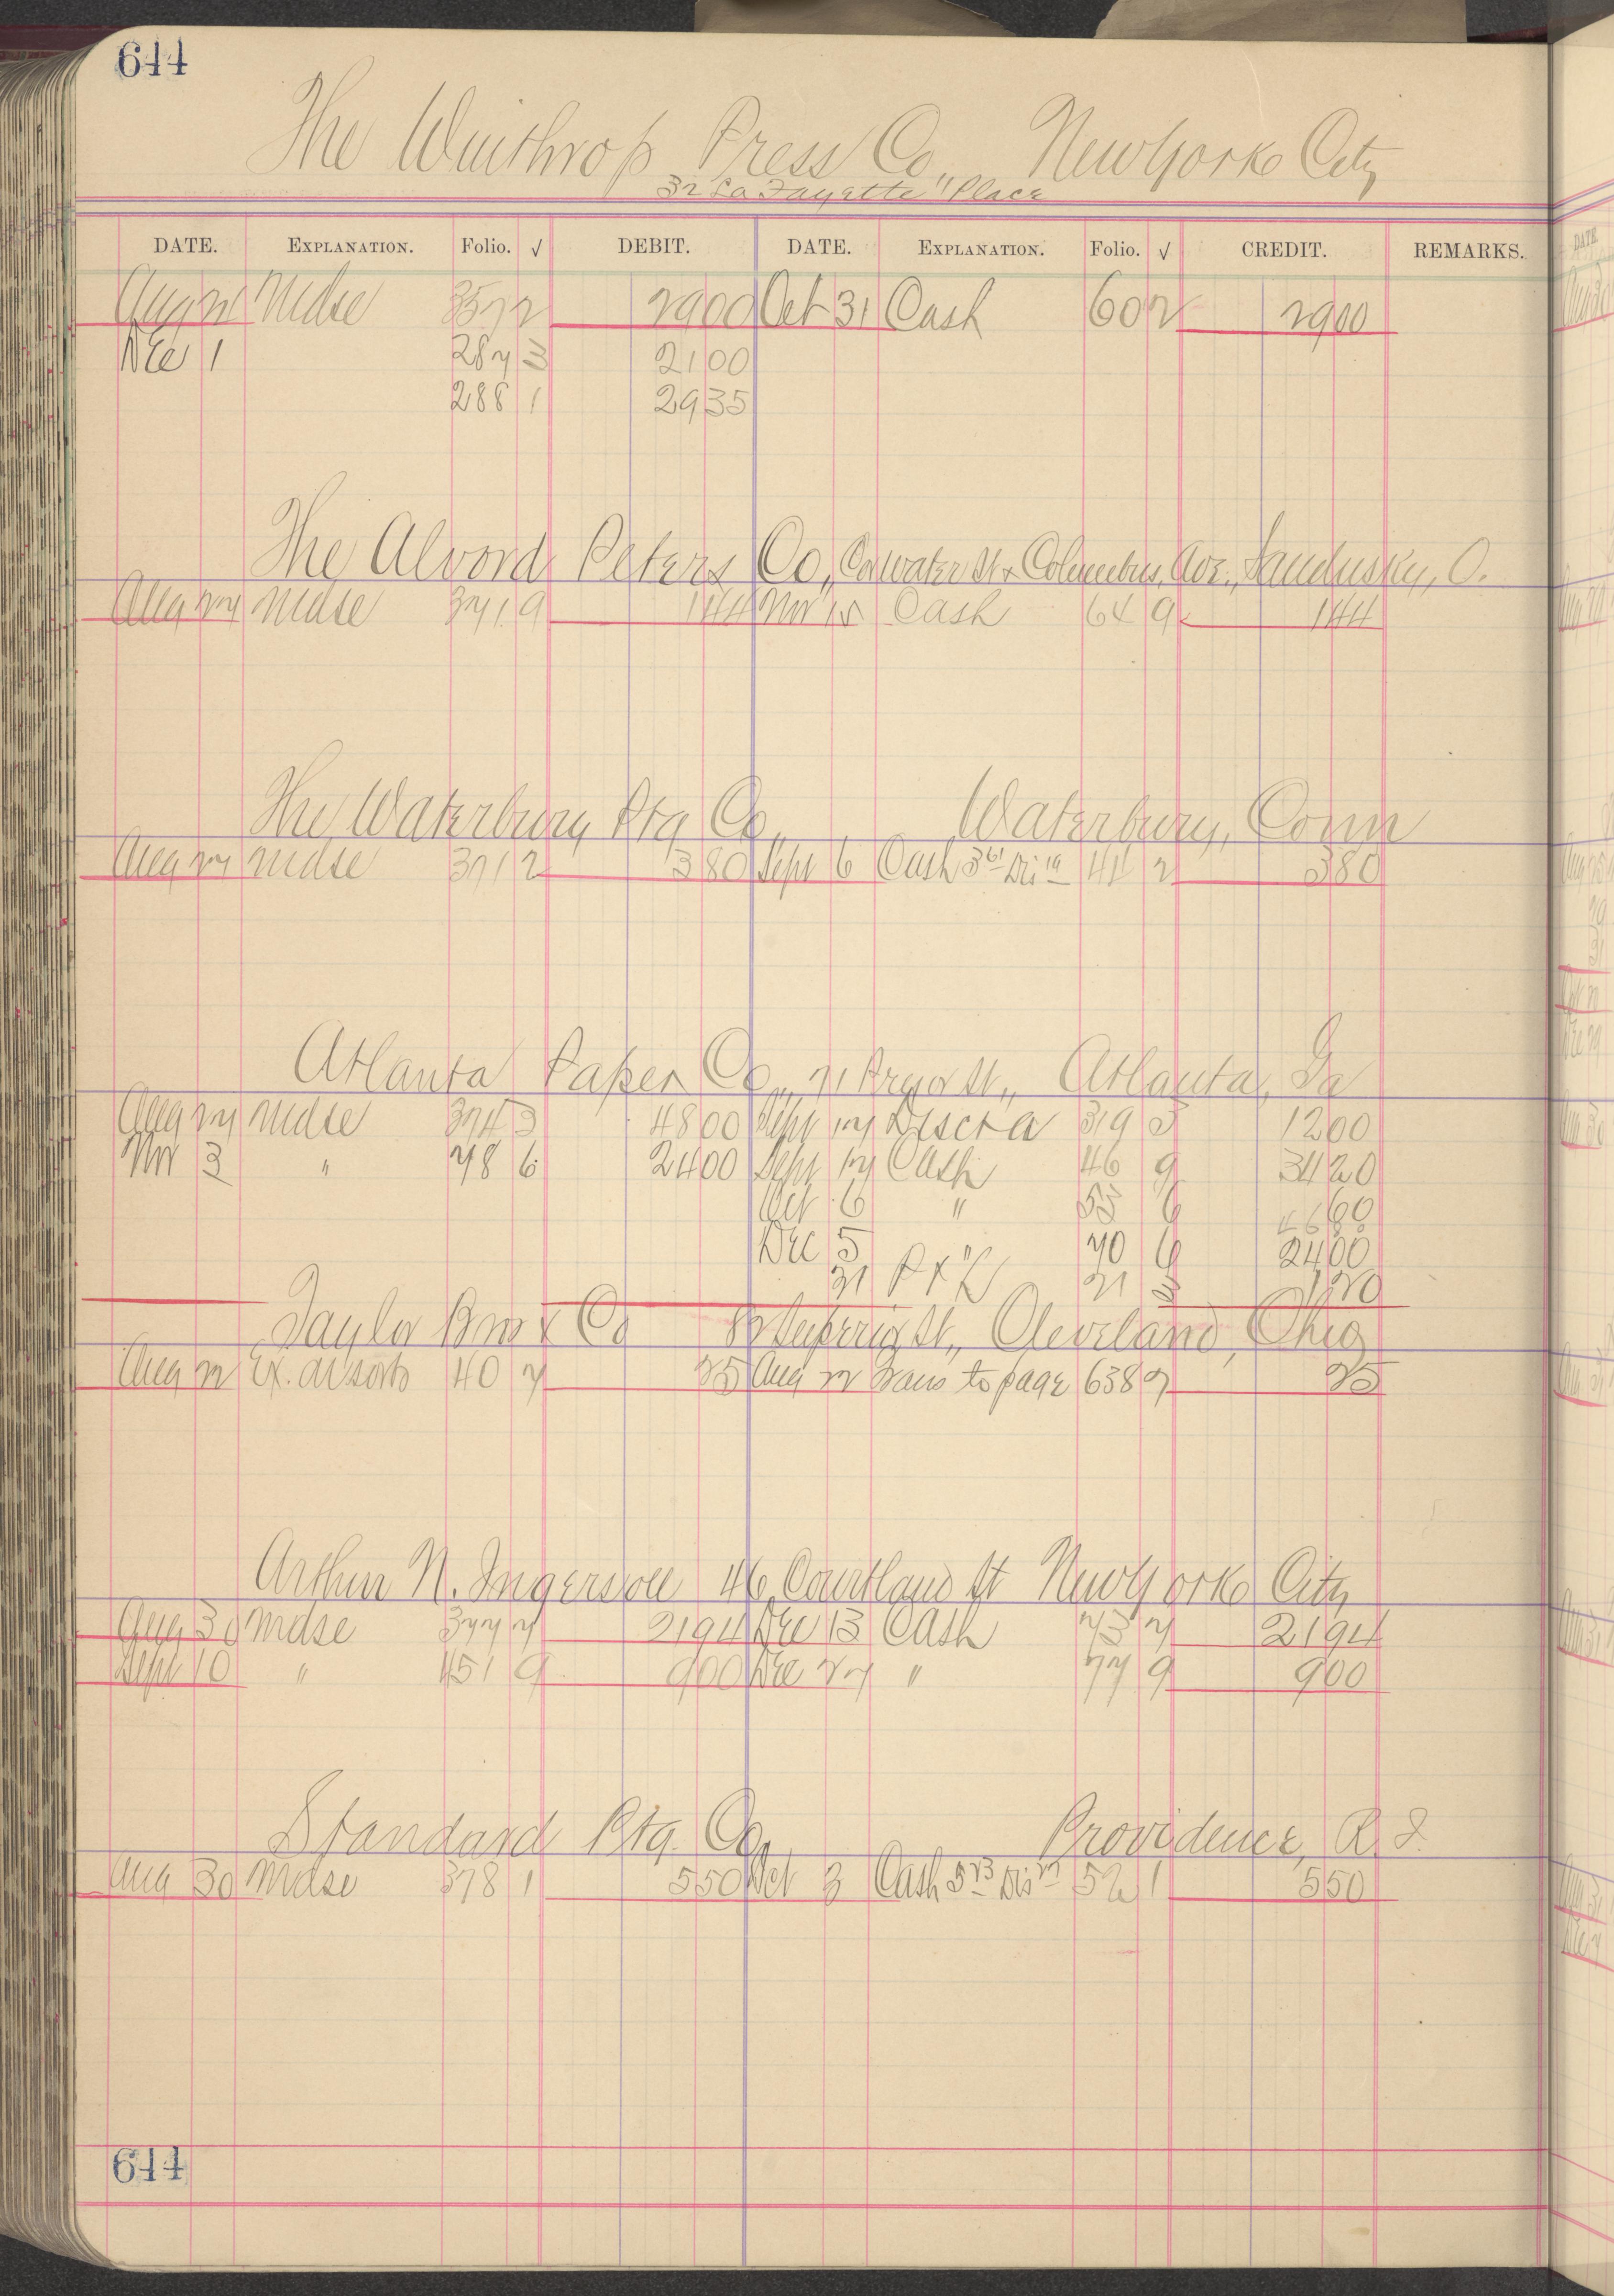 644
The Winthrop Press Co., New York City
32 La Fayette Place
DATE. EXPLANATION. Folio. √ DEBIT. DATE. EXPLANATION. Folio. √ CREDIT. REMARKS.
Aug 22 Mdse 357 2 2900 Oct 31 Cash 60 2 2900
Dec 1 287 3 2100
288 1 2935
The Alvord Peters Co, Cor Water St & Columbus, Ave., Sandusky, O.
Aug 27 Mdse 371 9 144 Nov 15 Cash 64 9 144
The Waterbury Ptg Co, Waterbury, Conn
Aug 27 Mdse 371 2 380 Sept 6 Cash Dis 44 2 380
Atlanta Paper Co., 71 Pryor St., Atlanta, Ga
Aug 27 Mdse 374 3 4800 Sept 17 Disct a 319 3 1200
Nov 3 " 78 6 2400 Sept 17 Cash 46 9 3420
Oct 6 " 53 6 60
Dec 5 " 70 6 2400
31 P & L 21 3 120
Taylor Bros & Co Superior St., Cleveland, Ohio
Aug 22 Ex. Assorts 40 7 25 Aug 22 Trans to page 638 7 25
Arthur N. Ingersoll 46 Courtland St New York City
Aug 30 Mdse 377 7 2194 Dec 13 Cash 73 7 2194
Sept 10 " 451 9 900 Dec 27 " 77 9 900
Standard Ptg. Co, Providence, R.I.
Aug 30 Mdse 378 1 550 Oct 3 Cash Dis 52 1 550
644